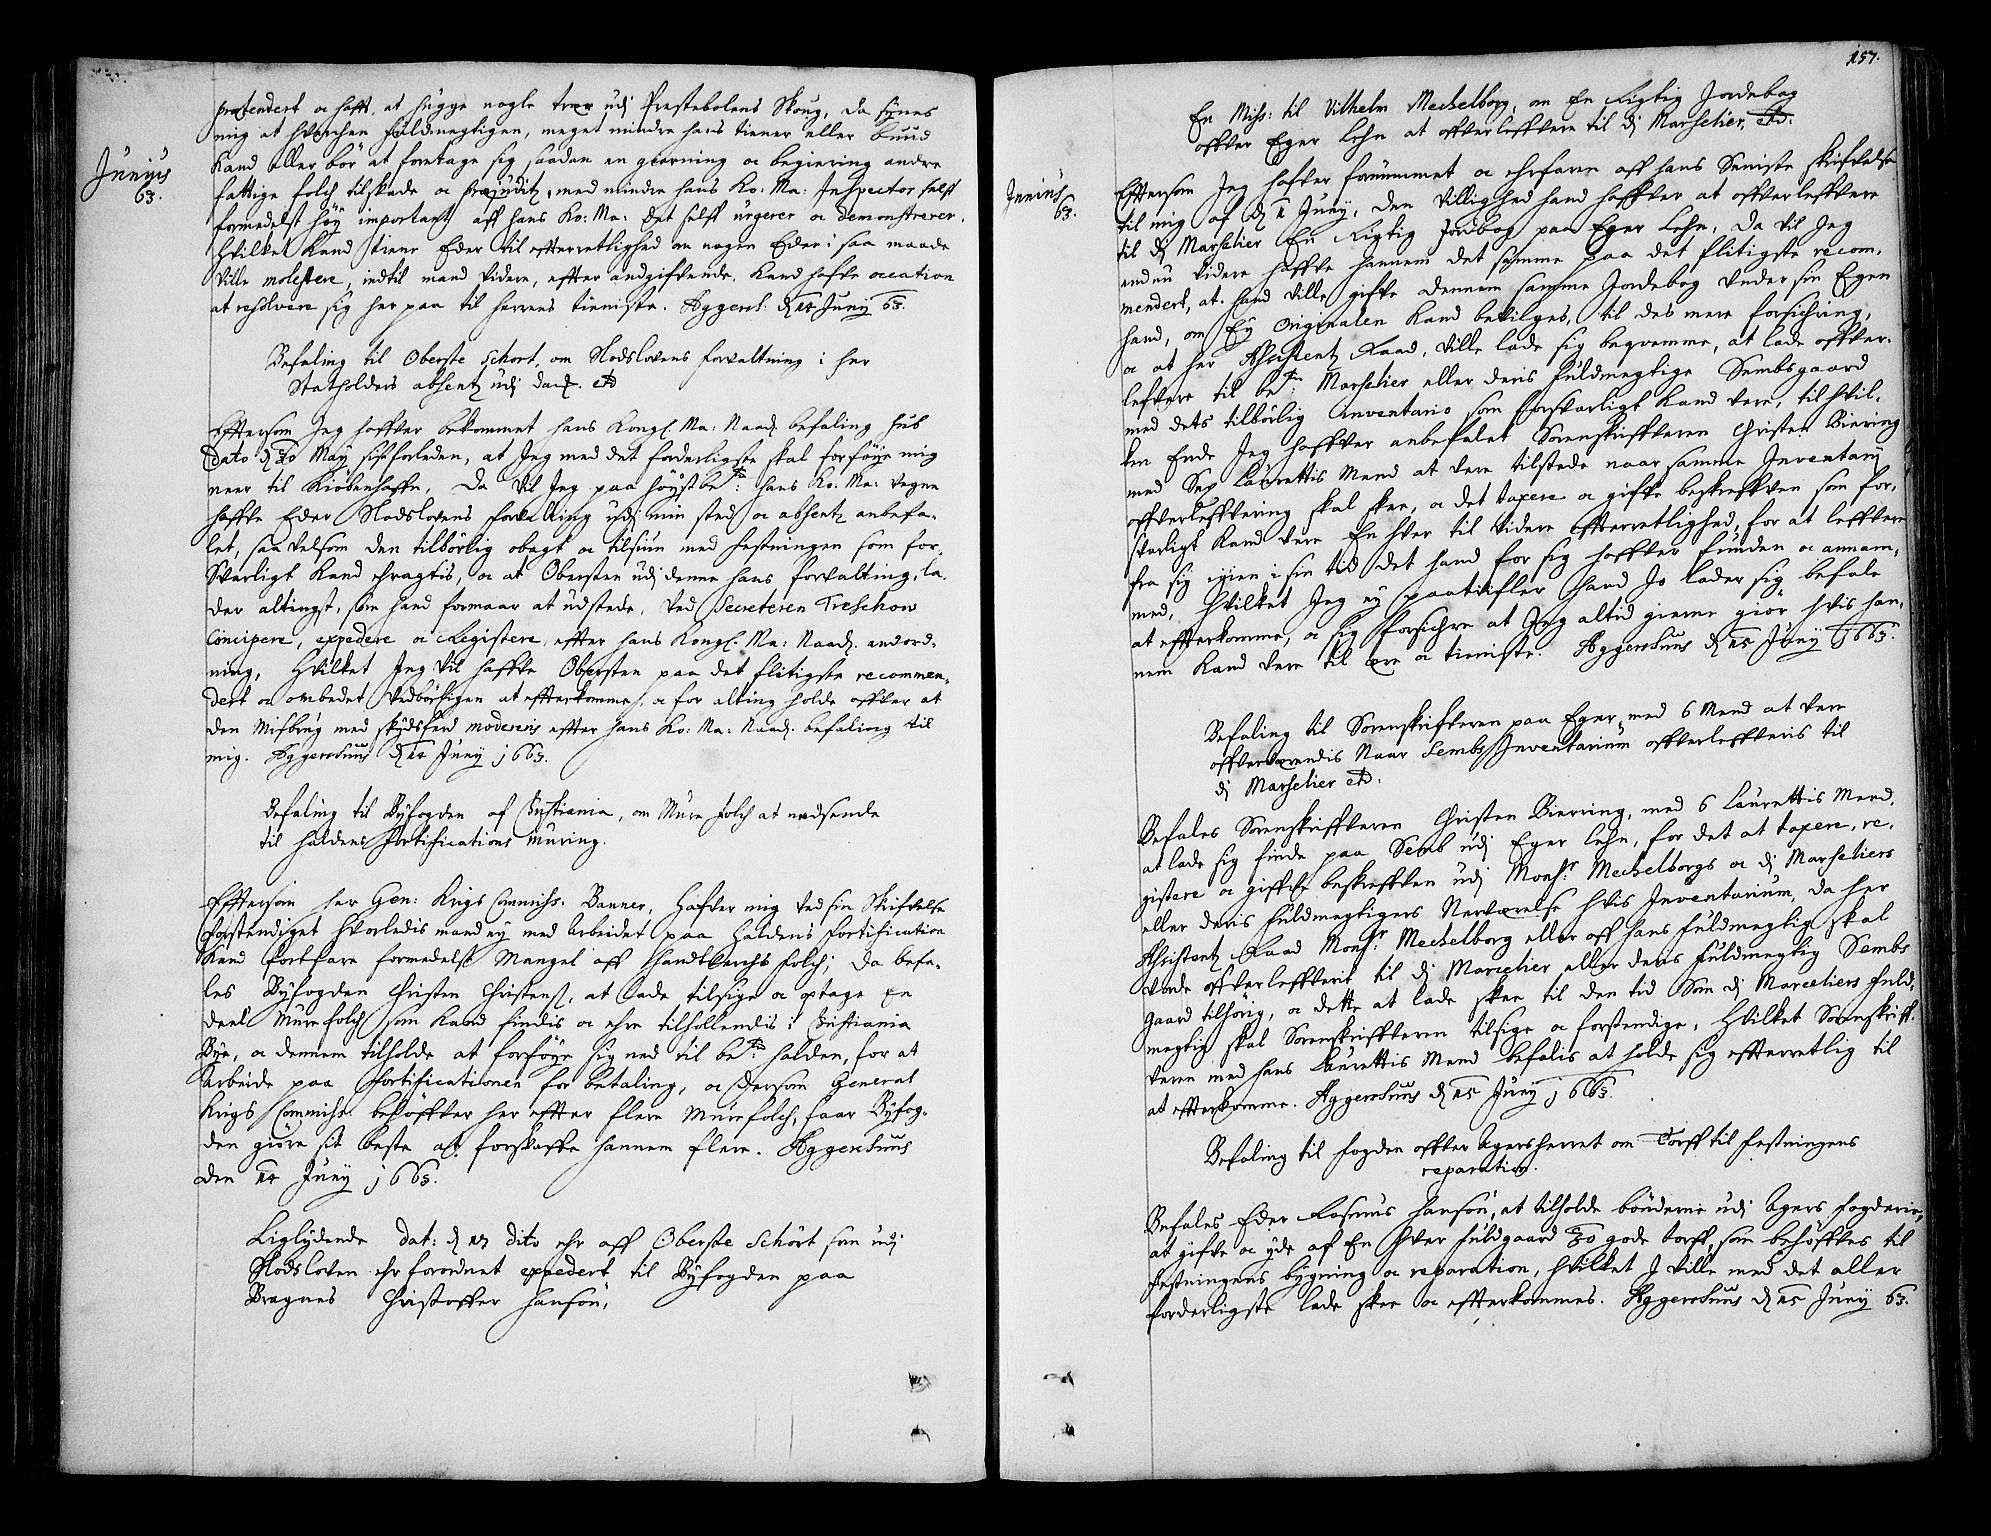 Junius
63.
prætendert oc hafft, at hugge nogle træer udj Prestebolens Skoug, da synes
mig at huerchen fuldmegtigen, meget mindre hans tiener eller buud
kand eller bør at foretage sig saadan en gierning oc begiering andre
fattige folch til skade oc præjuditz, med mindre hans Ko: Ma: Inspector self
formedelst høy important aff hans Ko: Ma: det self urgerer oc demonstrerer.
Hvilket kand tiene Eder til efterretlighed om nogen Eder i saa maade
ville molestere, indtil mand videre, effter andgifvende, kand hafve occation
at resolvere sig her paa til herrens tieniste. Aggersh: d 14 Junÿ 63.
Befaling til Oberste Schort, om Slodslovens forvaltning i her
Statholders absentz udj danß. etc
Effterson Jeg haffver bekommet hans Kongl. Ma: Naad. befaling sub
dato d 30 Maÿ sistforleden, at Jeg med det forderligste skal forføye mig
neer til Kiøbenhaffn, Da vil Jeg paa høystbete: hans Ko: Ma: vegne
haffve Eder Slodslovens forvaltning udj min sted oc absentz anbefa-
let, saa velsom den tilbørlig obagt oc tilsiun med festningen som for-
svarligt kand eragtis, oc at Obersten udj denne hans forvaltning, la-
der altingest, som hand formaar at udstede, ved Secreteren Treschow
Concipere, expedere oc Registere, effter hans Kongl. Ma: Naad. anord-
ning, Hvilket Jeg vil haffve Obersten paa det flitigste recommen-
dert oc ombedet vedbørligen at effterkomme, oc for alting holde offver at
den Misbrug med skydsferd modereris effter hans Ko: Ma: Naad. befaling til
mig. Aggershuus d 14 Junÿ 1663.
Befaling til Byfogden af Christiania, om Mure folch at nedsende
til Haldens fortifications Muring.
Effterson her Gen: Krigs Commiss: Banner, hafver mig ved sin Skrifvelse
forstendiget hvorledis mand ey med Arbeidet paa Haldens fortification
kand fortfare formedelst Mangel aff Handtverchs folch; Da befa-
les Byfogden Christen Christenß, at lade tilsige oc optage En
deel Murefolch som kand findis oc ehre tilhollendis i Christiania
Bye, oc dennem tilholde at forføye sig ned til bete: Halden, for at
Arbeide paa fortificationen for betaling, oc dersom General
Krigs Commiss: behøffver her effter flere Murefolch, faar Byfog-
den giøre sit beste at forskaffe hannem flere. Aggershuus
den 14 Junÿ 1663.
Liglydende dat: d 17 dito ehr aff Oberste Schort som udj
Slodsloven ehr forordnet expedert til Byfogden paa
Bragnes Christoffer Hansøn,
157.
En Miss: til Vilhelm Mechelborg, om En Rigtig Jordebog
offver Eger Lehn at offverleffvere til dj Marselier, etc:
Junius
63.
Effterson Jeg hafver fornummet oc erfaren aff hans Seniste skrifvelse
til mig af d 11 Junÿ, den villighed hand haffver at offverleffvere
til dj Marselier En Rigtig Jordbog paa Eger Lehn, Da vil Jeg
endnu videre haffve hannem det samme paa det flitigste recom-
mendert, at hand ville gifve dennem samme Jordebog under sin Egen
hand, om Ey Originalen kand bevilges, til des mere forsichring,
oc at her Assistentz Raad, ville lade sig beqvemme, at lade offver-
lefvere til bete: Marselier eller deris fuldmegtige Sembsgaard
med dets tilbørlig Inventario som forsvarligt kand vere, til hvil-
ken Ende Jeg haffver anbefalet Sorenskriffveren Christen Biering
med Sex Laurettis Mend at vere tilstede naar samme Inventarÿ
offverleffvering skal skee, oc det taxere oc gifve beskreffven som for-
svarligt kand vere En hver til videre effterretlighed, for at leffvere
fra sig igien i sin tid det hand for sig haffver funden oc annam-
med, Hvilket Jeg ey paatvifler hand jo lader sig befale
at effterkomme, oc sig forsichre at Jeg altid gierne giør hvis han-
nem kand vere til ære oc tieniste. Aggershuus d 15 Junÿ 1663.
Befaling til Sorenskrifveren paa Eger, med 6 Mend at vere
offverværendis Naar Sembs Inventarium offverleffveris til
dj Marselier etc.
Befales Sorenskriffveren Christen Bierring, med 6 Laurettis Mend,
at lade sig finde paa Semb udj Eger Lehn, for det at taxere, re-
gistere oc giffve beskreffven udj Monsr. Mechelborgs oc dj Marseliers
eller deris fuldmegtigers Nerværelse hvis Inventarium, da her
Assistentz Raad Monsr. Mechelborg eller aff hans fuldmegtig skal
vorde offverleffverit til dj Marcelier eller deris fuldmegtig Sembs
gaard tilhørig, oc dette at lade skee til den tid Som dj Marceliers fuld-
megtig skal Sorenskriffveren tilsige oc forstendige, Hvilket Sorenskriff-
veren med hans Laurettis Mend befalis at holde sig effterretlig til
at effterkomme. Aggershuus d 15 Junÿ 1663.
Befaling til fogden offver Agersherret om Torff til festningens
reparation.
Befales Eder Rasmus Hansøn, at tilholde bønderne udj Agers fogderie,
at gifve oc yde af En hver fuldgaard 30 gode torff, som behøffves til
festningens bygning oc reparation, Hvilket J ville med det aller
forderligste lade skee oc effterkommes. Aggershuus d 15 Junÿ 63.